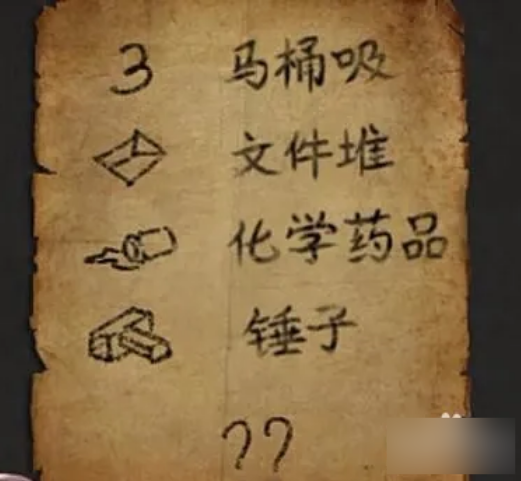 3 马桶吸
文件堆
化学药品
锤子
??